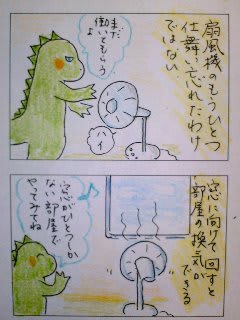 扇風機のもうひとつ
仕舞い忘れたわけ
ではない
まだ
働いてもらう
よ
ハイ
窓に向けて回すと
部屋の換気が
できる
窓がひとつしか
ない部屋で
やってみてね